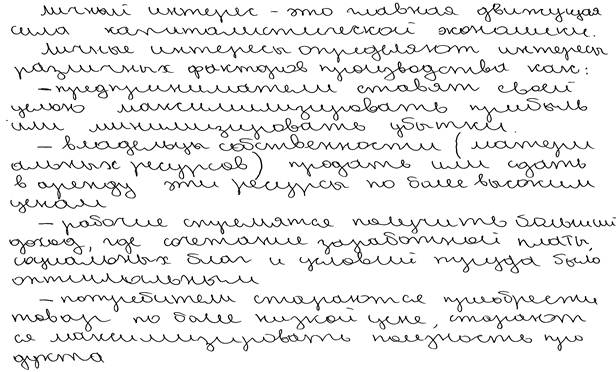 личный интерес - это главная движущая
сила капиталистической экономики.
Личные интересы определяют интересы
различных факторов производства как:
- предприниматели ставят своей
целью максимилизировать прибыль
или минимилизировать убытки.
- владельцы собственности (матери
альных ресурсов) продать или сдать
в аренду эти ресурсы по более высоким
ценам
- рабочие стремятся получить больший
доход, где сочетание заработной платы,
социальных благ и условий труда было
оптимальным
- потребители стараются приобрести
товар по более низкой цене, старают
ся максимизировать полезность про
дукта